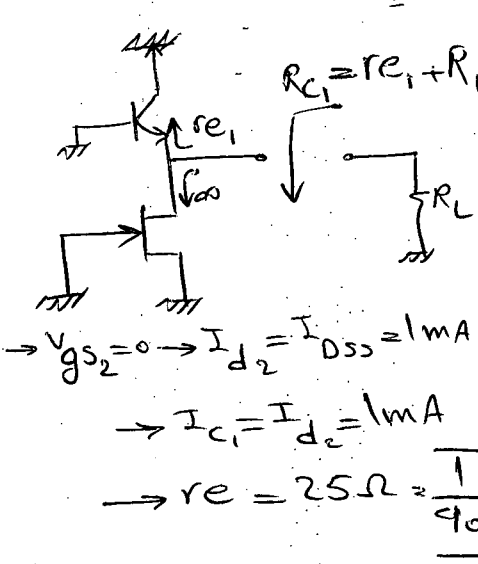 R_{C_1} = re_1 + R_1
re_1
∞
R_L
→ V_{gs_2} = 0 → I_{d_2} = I_{DSS} = 1mA
→ I_{C_1} = I_{d_2} = 1mA
→ re = 25Ω = 1/40